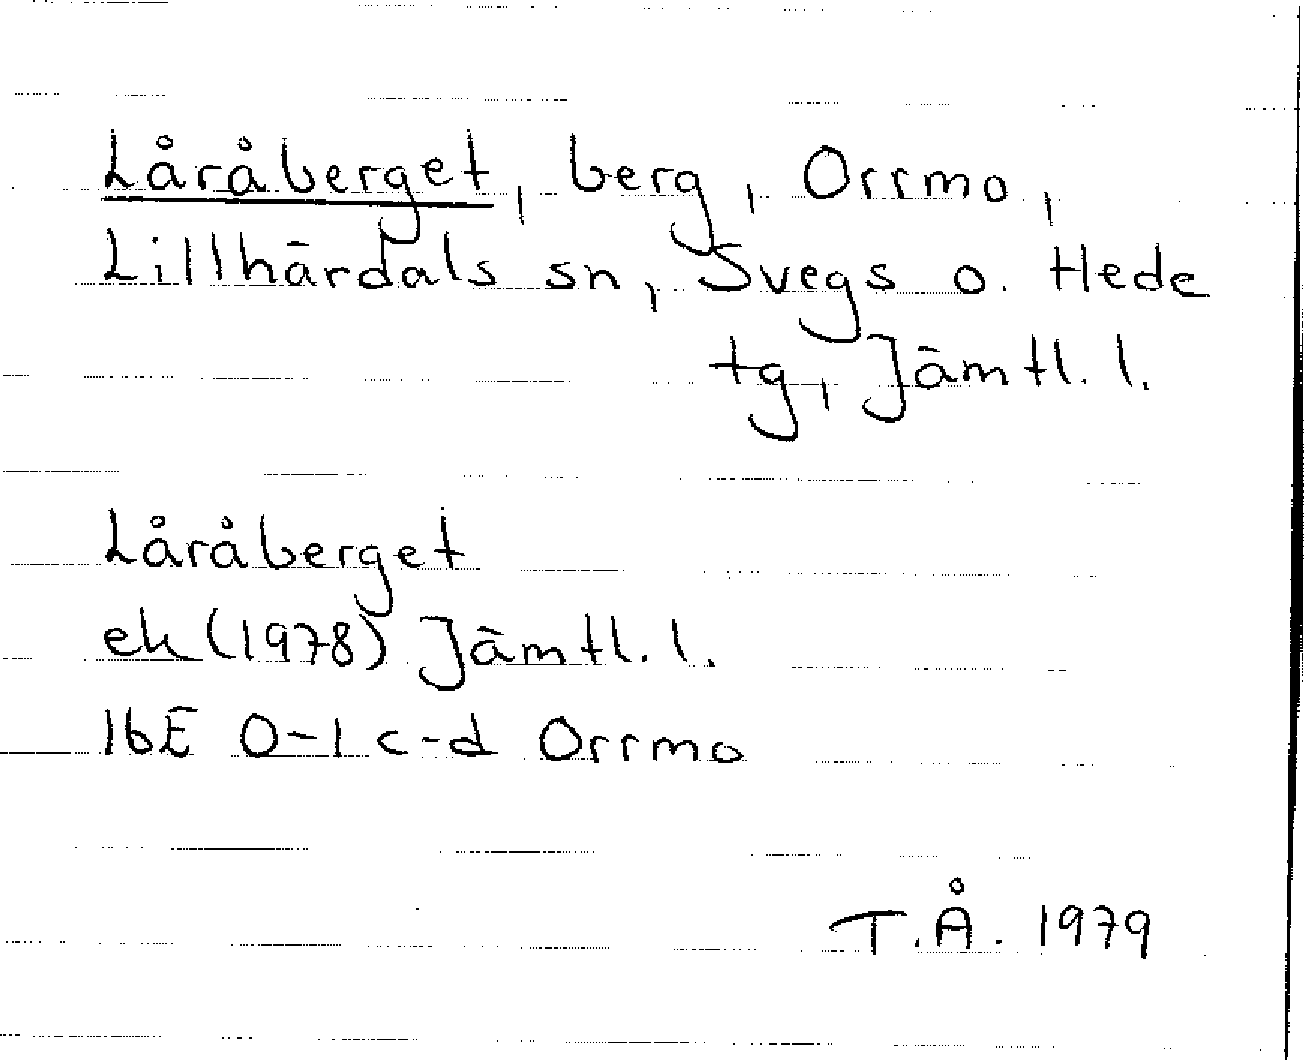 Låråberget, berg, Orrmo,
Lillhärdals sn, Svegs o. Hede
tg, Jämtl. l.
Låråberget
ek (1978) Jämtl. l.
16E 0-1 c-d Orrmo
T.Å. 1979